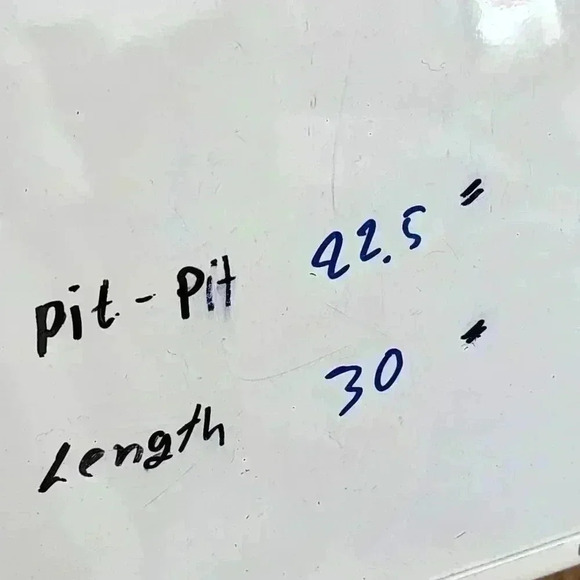 Pit - Pit 22.5 "
Length 30 "